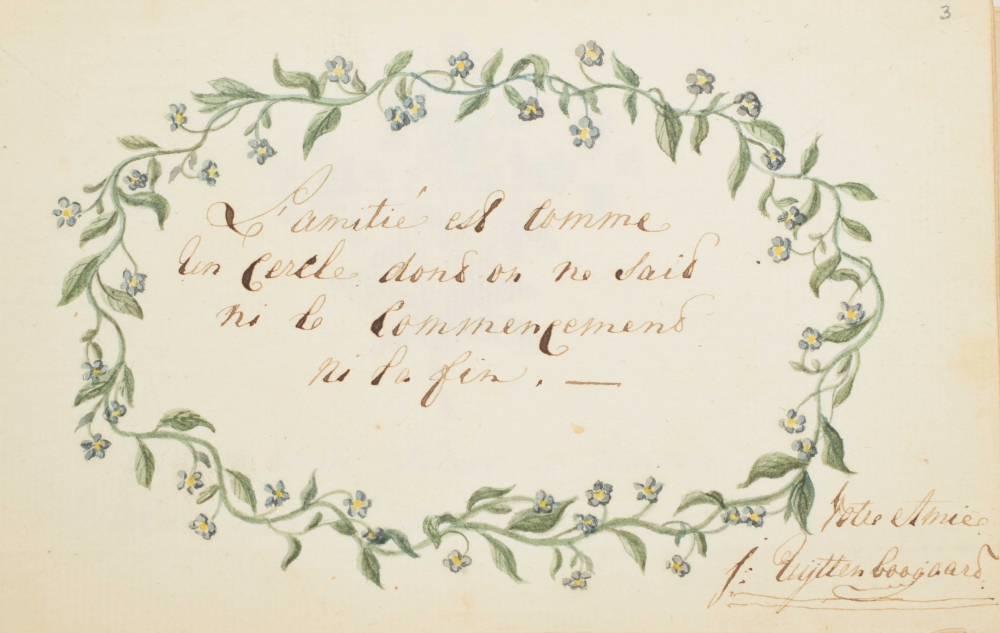 3
L'amitié est comme
un cercle dont on ne sait
ni le commençement
ni la fin. —
Votre Amie
J: Uyttenboogaard